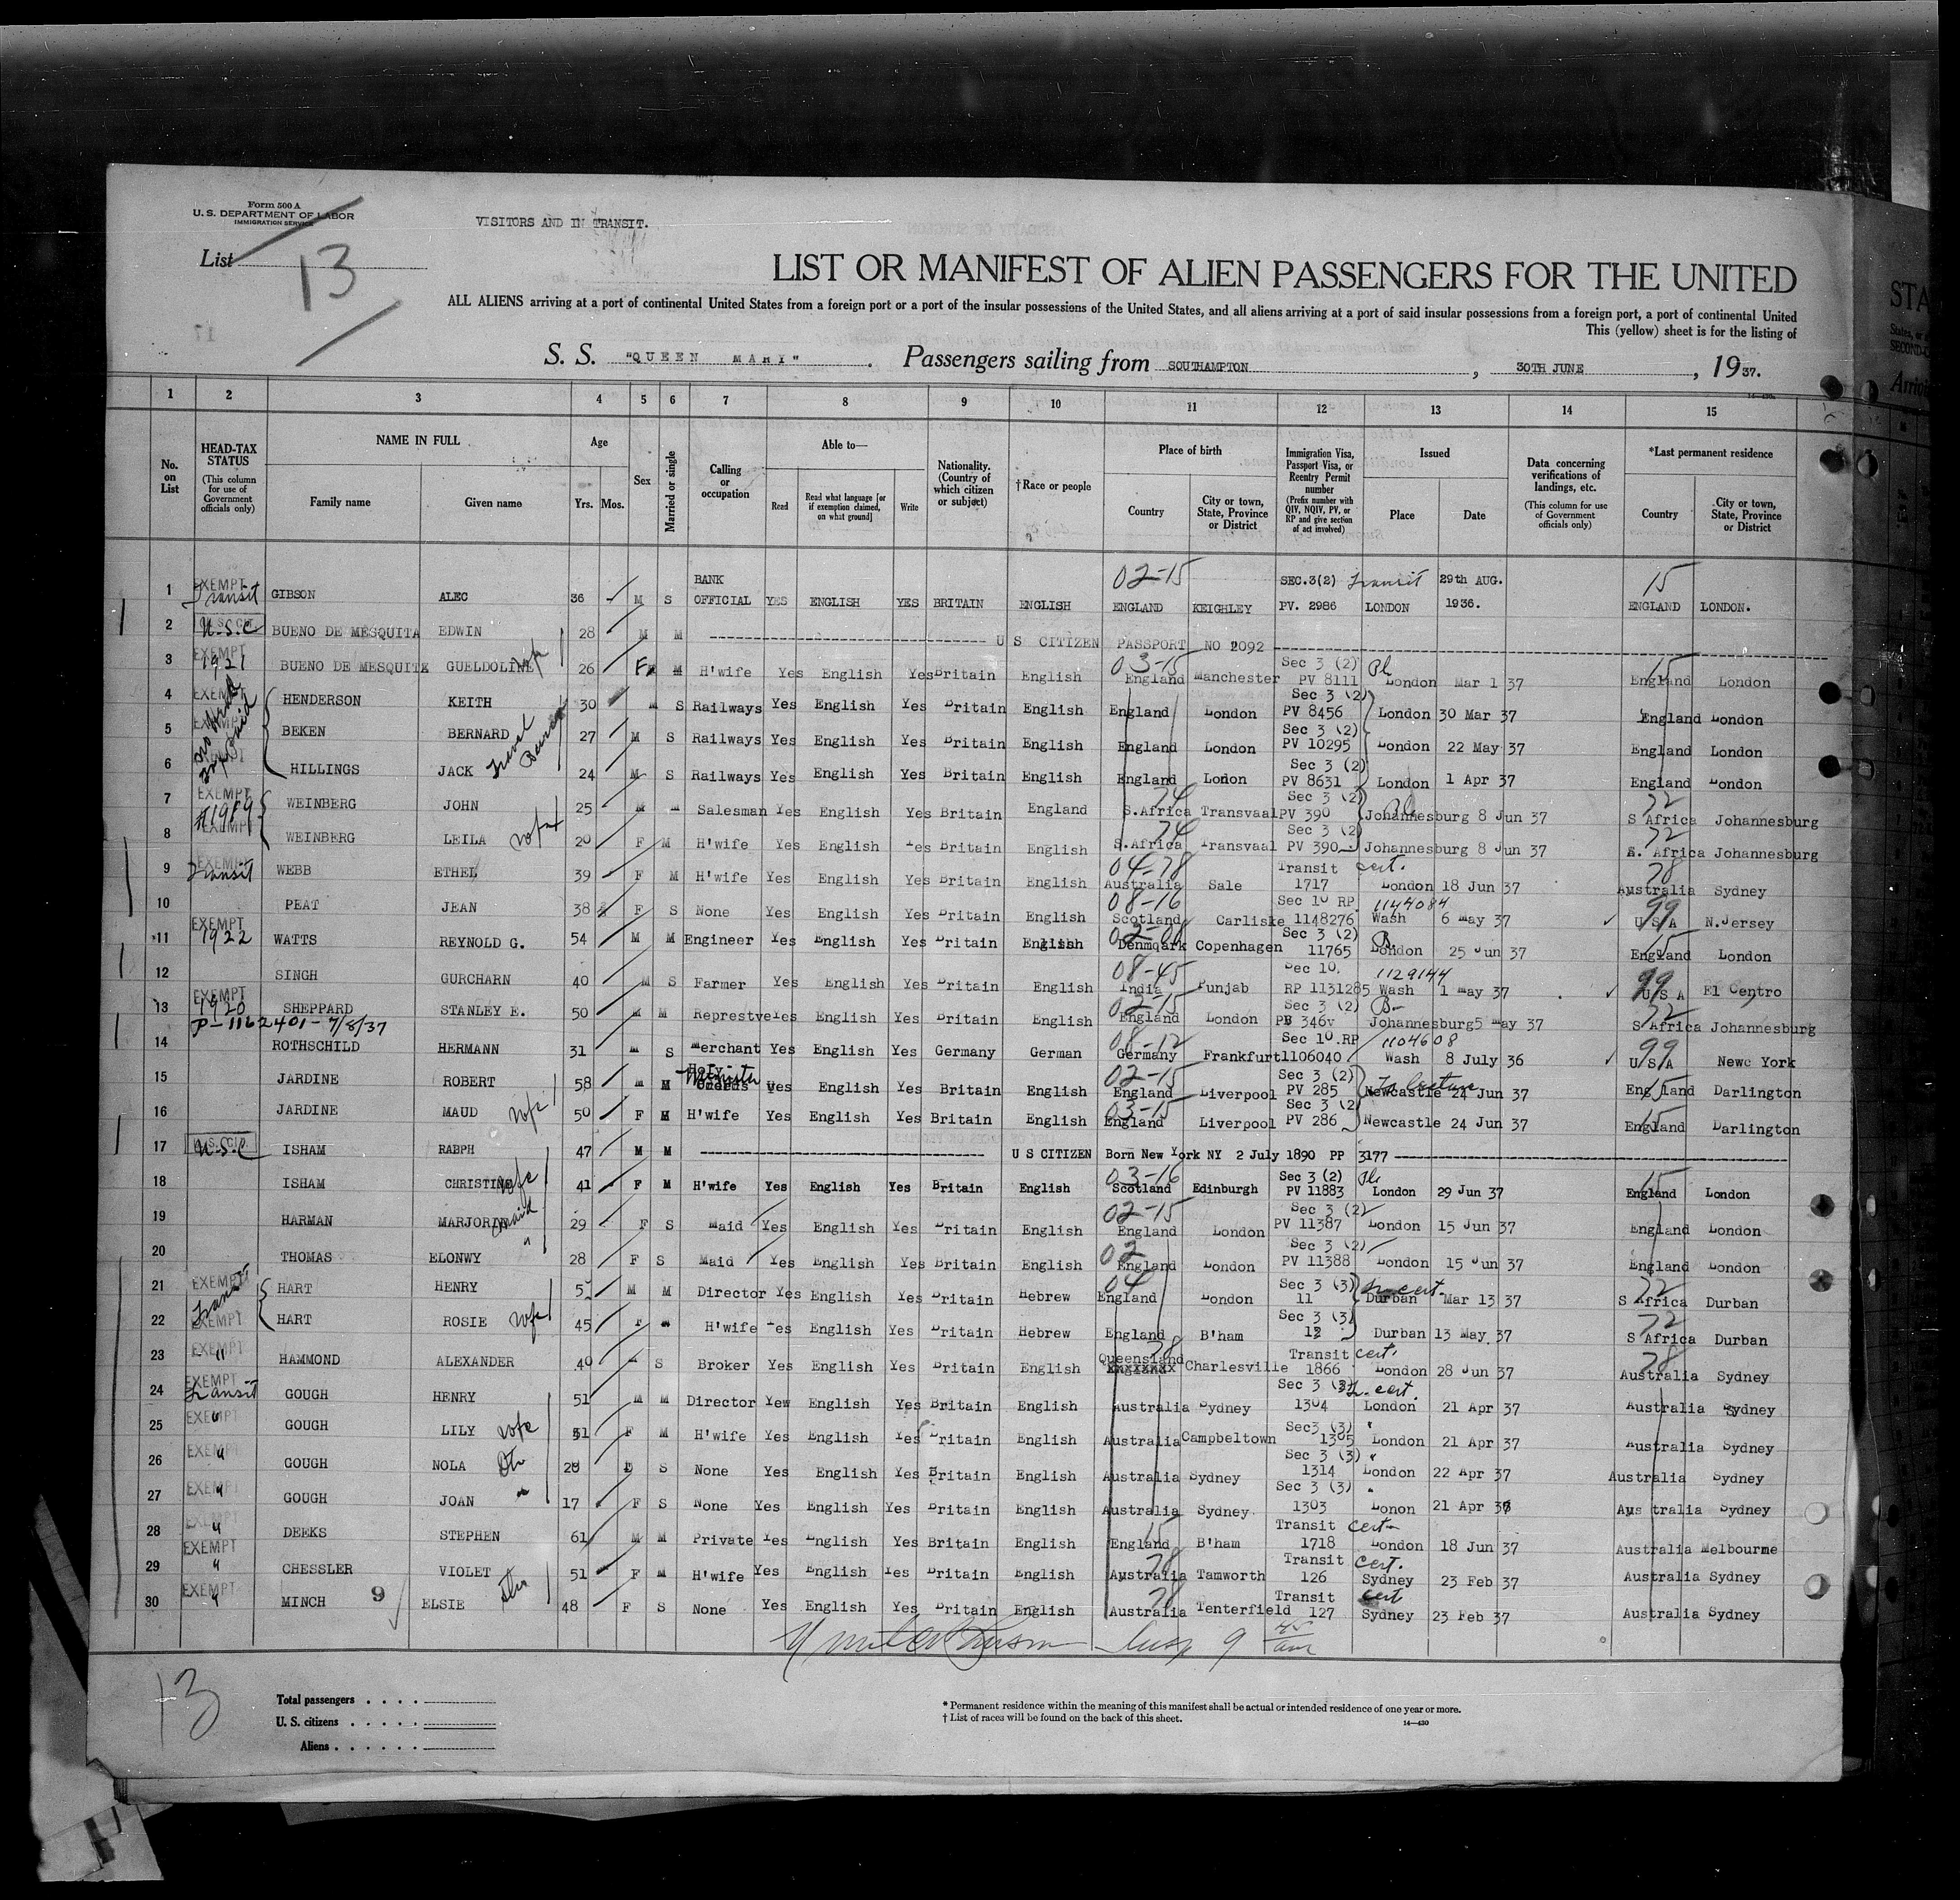 Form 500 A
U. S. DEPARTMENT OF LABOR
IMMIGRATION SERVICE
VISITORS AND IN TRANSIT.
List 13
LIST OR MANIFEST OF ALIEN PASSENGERS FOR THE UNITED
ALL ALIENS arriving at a port of continental United States from a foreign port or a port of the insular possessions of the United States, and all aliens arriving at a port of said insular possessions from a foreign port, a port of continental United
This (yellow) sheet is for the listing of
S. S. "QUEEN MARY". Passengers sailing from SOUTHAMPTON, 30TH JUNE, 1937.
1 2 3 4 5 6 7 8 9 10 11 12 13 14 15
No. on List
HEAD-TAX STATUS (This column for use of Government officials only)
NAME IN FULL Family name Given name
Age Yrs. Mos.
Sex
Married or single
Calling or occupation
Able to— Read Read what language [or if exemption claimed, on what ground] Write
Nationality. (Country of which citizen or subject)
†Race or people
Place of birth Country City or town, State, Province or District
Immigration Visa, Passport Visa, or Reentry Permit number (Prefix number with QIV, NQIV, PV, or RP and give section of act involved)
Issued Place Date
Data concerning verifications of landings, etc. (This column for use of Government officials only)
*Last permanent residence Country City or town, State, Province or District
1 EXEMPT Transit GIBSON ALEC 36 M S BANK OFFICIAL YES ENGLISH YES BRITAIN ENGLISH 02-15 ENGLAND KEIGHLEY SEC.3(2) PV. 2986 Transit LONDON 29th AUG. 1936. 15 ENGLAND LONDON.
2 U.S.C BUENO DE MESQUITA EDWIN 28 M M U S CITIZEN PASSPORT NO 2092
3 EXEMPT 1921 BUENO DE MESQUITA GUELDOLINE wfe 26 F M H'wife Yes English Yes Britain English 03-15 England Manchester Sec 3 (2) PV 8111 Pl London Mar 1 37 15 England London
4 EXEMPT HENDERSON KEITH 30 M S Railways Yes English Yes Britain English England London Sec 3 (2) PV 8456 London 30 Mar 37 England London
5 EXEMPT BEKEN BERNARD 27 M S Railways Yes English Yes Britain English England London Sec 3 (2) PV 10295 London 22 May 37 England London
6 EXEMPT HILLINGS JACK 24 M S Railways Yes English Yes Britain English England London Sec 3 (2) PV 8631 London 1 Apr 37 England London
7 EXEMPT WEINBERG JOHN 25 M M Salesman Yes English Yes Britain England 74 S.Africa Transvaal Sec 3 (2) PV 390 Pl Johannesburg 8 Jun 37 72 S Africa Johannesburg
8 EXEMPT WEINBERG LEILA wfe 20 F M H'wife Yes English Yes Britain English 74 S.Africa Transvaal Sec 3 (2) PV 390 Johannesburg 8 Jun 37 72 S. Africa Johannesburg
9 EXEMPT Transit WEBB ETHEL 39 F M H'wife Yes English Yes Britain English 04-78 Australia Sale Transit cert. 1717 London 18 Jun 37 78 Australia Sydney
10 PEAT JEAN 38 F S None Yes English Yes Britain English 08-16 Scotland Carliske Sec 10 RP 1148276 1144084 Wash 6 may 37 99 U S A N.Jersey
11 EXEMPT 1922 WATTS REYNOLD G. 54 M M Engineer Yes English Yes Britain English Denmqark Copenhagen Sec 3 (2) 11765 B. London 25 Jun 37 15 England London
12 SINGH GURCHARN 40 M S Farmer Yes English Yes Britain English 08-45 India Punjab Sec 10. RP 1131285 1129144 Wash 1 may 37 99 U S A El Centro
13 EXEMPT 1920 SHEPPARD STANLEY E. 50 M M Represtve Yes English Yes Britain English 02-15 England London Sec 3 (2) PB 346v B. Johannesburg 5 may 37 72 S Africa Johannesburg
P-1162401-7/8/37
14 ROTHSCHILD HERMANN 31 M S merchant Yes English Yes Germany German 08-12 Germany Frankfurt Sec 10.RP 1106040 1104608 Wash 8 July 36 99 U S A Newc York
15 JARDINE ROBERT 58 M M Holy Orders Minister Yes English Yes Britain English 02-15 England Liverpool Sec 3 (2) PV 285 To lecture Newcastle 24 Jun 37 15 England Darlington
16 JARDINE MAUD wfe 50 F M H'wife Yes English Yes Britain English 03-15 England Liverpool Sec 3 (2) PV 286 Newcastle 24 Jun 37 15 England Darlington
17 U.S.C ISHAM RABPH 47 M M U S CITIZEN Born New York NY 2 July 1890 PP 3177
18 ISHAM CHRISTINE wfe 41 F M H'wife Yes English Yes Britain English 03-16 Scotland Edinburgh Sec 3 (2) PV 11883 Pl London 29 Jun 37 15 England London
19 HARMAN MARJORIE maid 29 F S Maid Yes English Yes Britain English 02-15 England London Sec 3 (2) PV 11387 London 15 Jun 37 England London
20 THOMAS ELONWY " 28 F S Maid Yes English Yes Britain English 02 England London Sec 3 (2) PV 11388 London 15 Jun 37 England London
21 EXEMPT Transit HART HENRY M M Director Yes English Yes Britain Hebrew 04 England London Sec 3 (3) 11 Tr cert. Durban Mar 13 37 72 S Africa Durban
22 EXEMPT HART ROSIE wfe 45 F M H'wife Yes English Yes Britain Hebrew England B'ham Sec 3 (3) 12 Durban 13 May 37 72 S Africa Durban
23 " HAMMOND ALEXANDER 40 M S Broker Yes English Yes Britain English 78 Queensland Charlesville Transit cert. 1866 London 28 Jun 37 78 Australia Sydney
24 EXEMPT Transit GOUGH HENRY 51 M M Director Yew English Yes Britain English Australia Sydney Sec 3 (3) 1304 Tr. cert. London 21 Apr 37 Australia Sydney
25 EXEMPT " GOUGH LILY wfe 51 F M H'wife Yes English Yes Britain English Australia Campbeltown Sec3 (3) " 1305 London 21 Apr 37 Australia Sydney
26 EXEMPT " GOUGH NOLA Dtr 20 F S None Yes English Yes Britain English Australia Sydney Sec 3 (3) " 1314 London 22 Apr 37 Australia Sydney
27 EXEMPT " GOUGH JOAN " 17 F S None Yes English Yes Britain English Australia Sydney Sec 3 (3) " 1303 Lonon 21 Apr 37 Australia Sydney
28 EXEMPT " DEEKS STEPHEN 61 M M Private Yes English Yes Britain English 15 England B'ham Transit cert 1718 London 18 Jun 37 Australia Melbourne
29 EXEMPT " CHESSLER VIOLET 51 F M H'wife Yes English Yes Britain English 78 Australia Tamworth Transit cert. 126 Sydney 23 Feb 37 Australia Sydney
30 EXEMPT " MINCH 9 ELSIE 48 F S None Yes English Yes Britain English 78 Australia Tenterfield Transit cert 127 Sydney 23 Feb 37 Australia Sydney
13
Total passengers
U. S. citizens
Aliens
* Permanent residence within the meaning of this manifest shall be actual or intended residence of one year or more.
† List of races will be found on the back of this sheet.
14—430